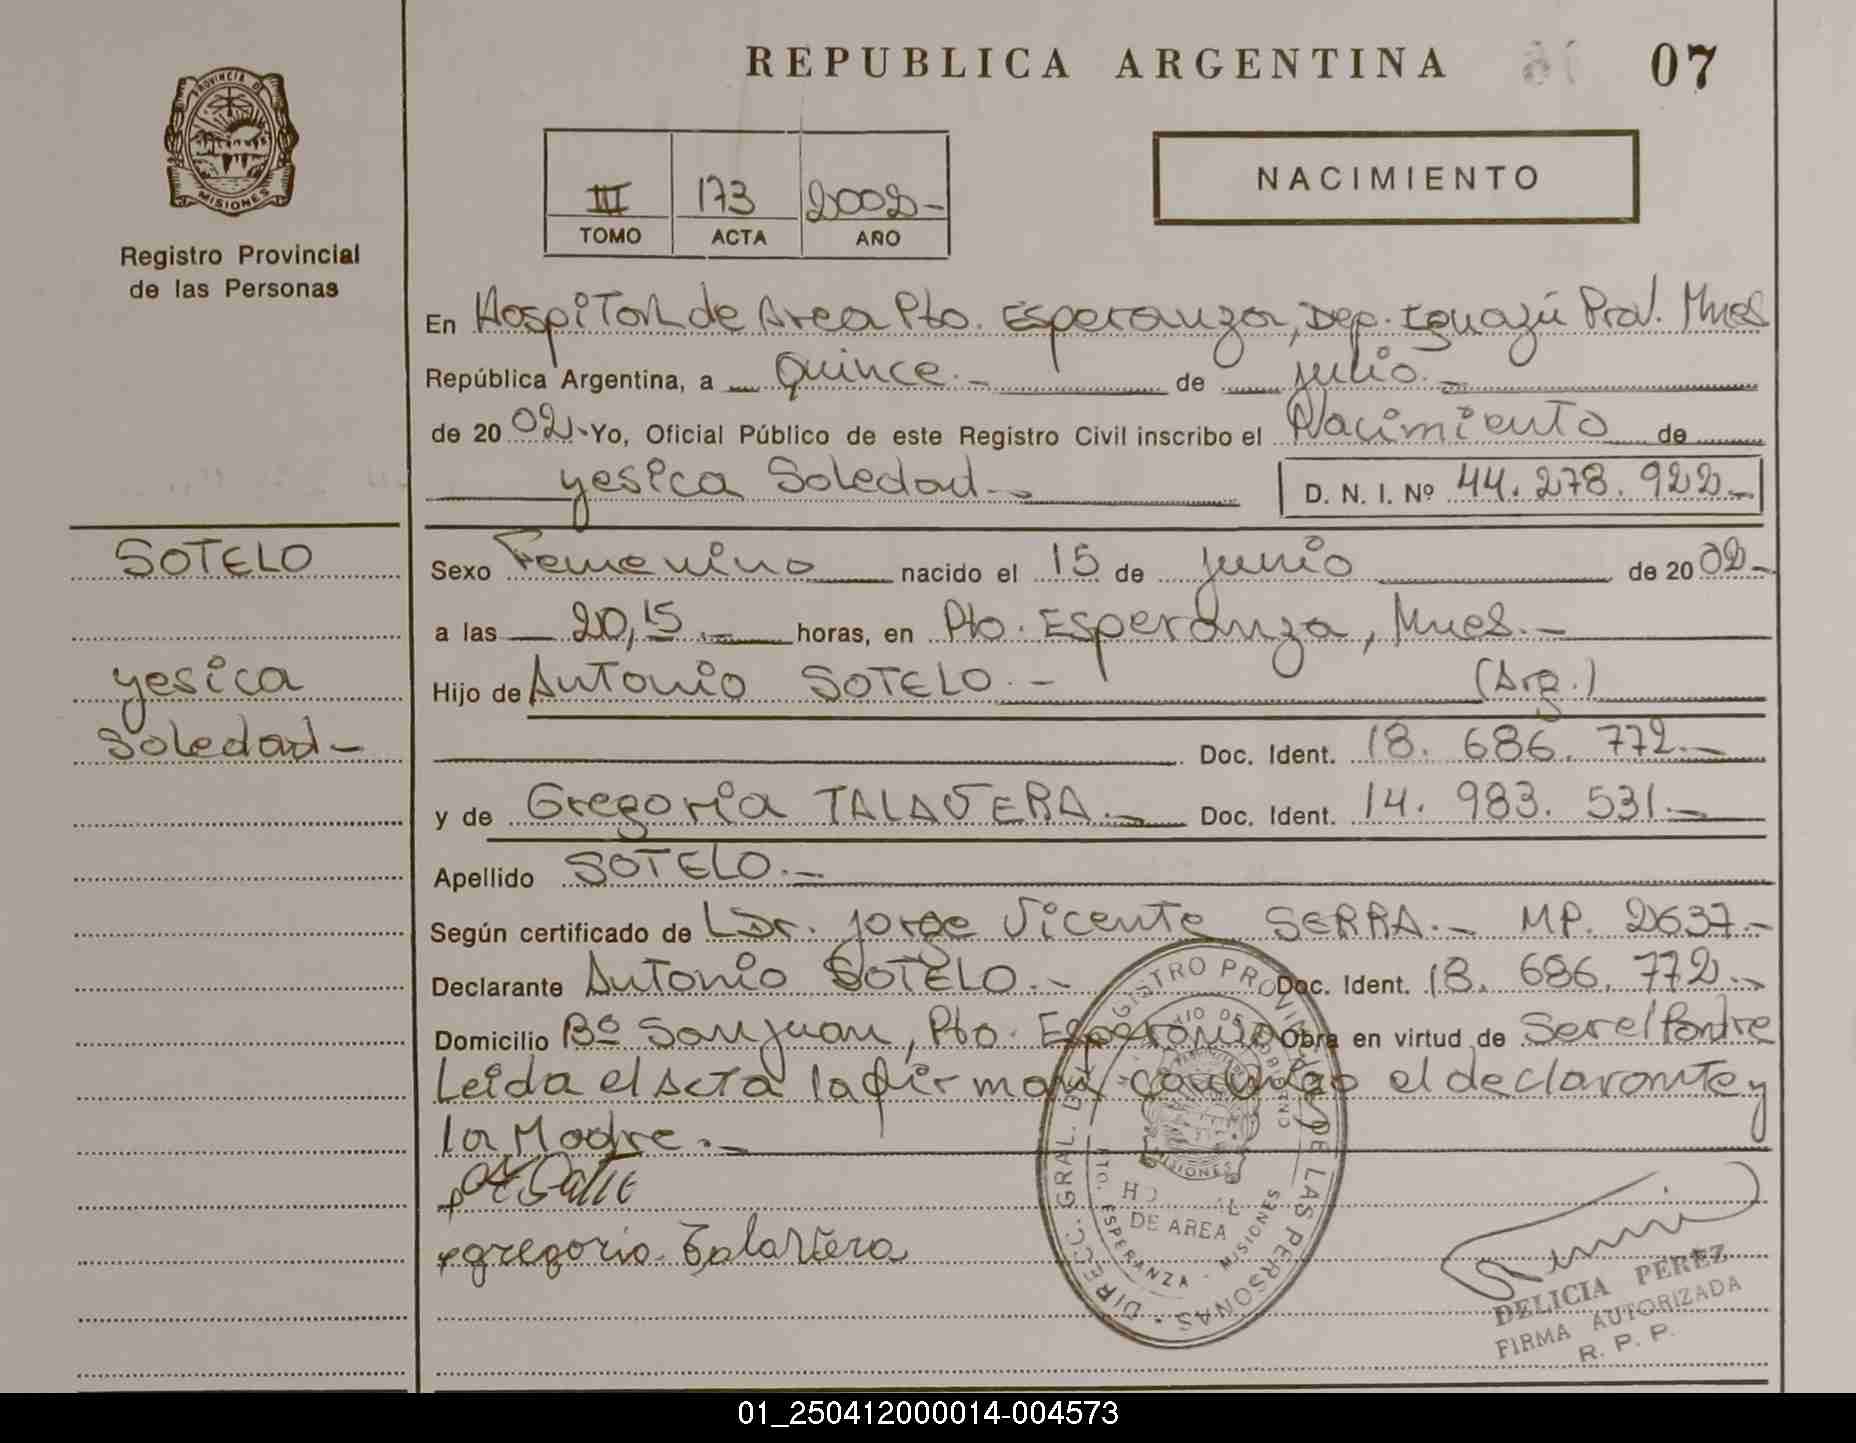 REPUBLICA ARGENTINA
07
PROVINCIA DE
MISIONES
Registro Provincial
de las Personas
III 173 2002-
TOMO ACTA AÑO
NACIMIENTO
En Hospital de Area Pto. Esperanza, Dep. Iguazú Prov. Mnes
República Argentina, a quince.- de julio.-
de 20 02.- Yo, Oficial Público de este Registro Civil inscribo el Nacimiento de
yesica Soledad.- D. N. I. Nº 44.278.922.-
SOTELO
yesica
Soledad-
Sexo Femenino nacido el 15 de junio de 20 02-
a las 20,15.- horas, en Pto. Esperanza, Mnes.-
Hijo de Antonio SOTELO.- (Arg.)
Doc. Ident. 18.686.772.-
y de Gregoria TALAVERA.- Doc. Ident. 14.983.531.-
Apellido SOTELO.-
Según certificado de Dr. Jorge Vicente SERRA.- MP. 2637-
Declarante Antonio SOTELO.- Doc. Ident. 18.686.772.-
Domicilio Bº San Juan, Pto. Esperanza Obra en virtud de Ser el Padre
Leida el Acta la firman conmigo el declarante y
la Madre.-
gregoria Talavera
DIRECC. GRAL. DEL REGISTRO PROVINCIAL DE LAS PERSONAS
MISIONES
DE AREA
PTO. ESPERANZA - MISIONES
DELICIA PEREZ
FIRMA AUTORIZADA
R. P. P.
01_250412000014-004573